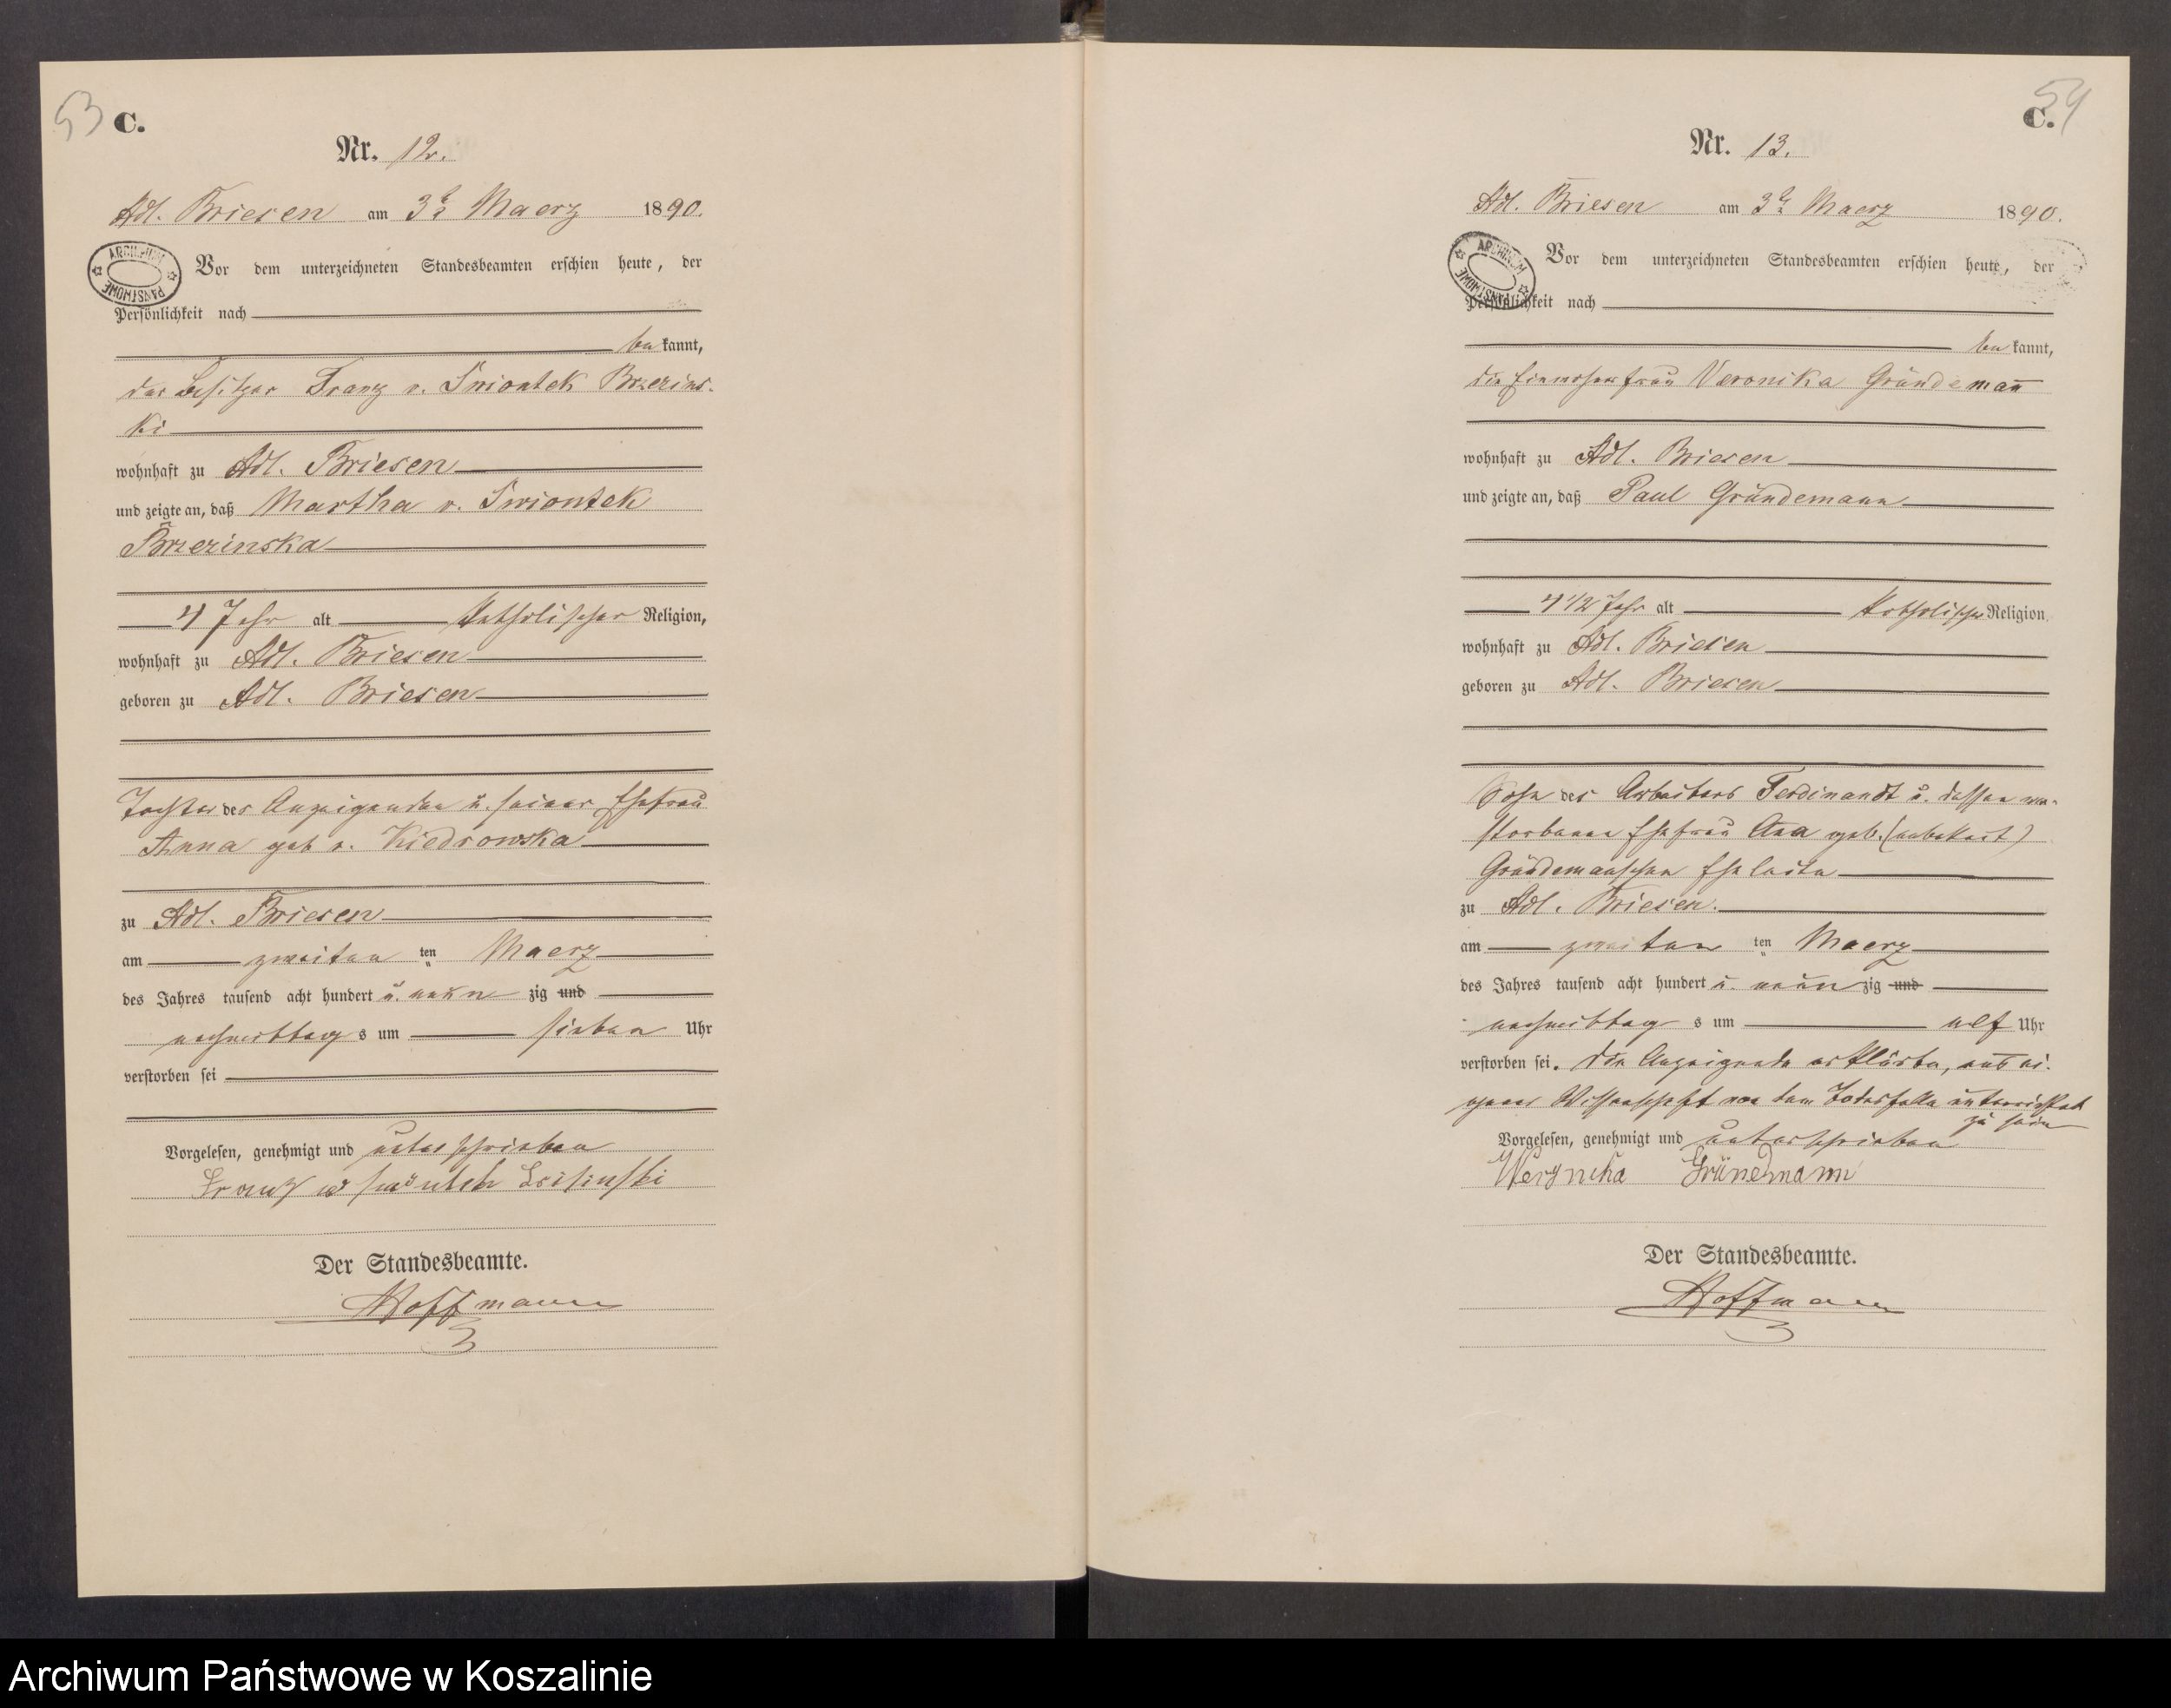 53 C.
Nr. 12.
Adl. Briesen am 3ᵗ Maerz 1890.
ARCHIWUM PAŃSTWOWE
Vor dem unterzeichneten Standesbeamten erschien heute, der
Persönlichkeit nach
be kannt,
der Besitzer Franz v. Swiontek Brzezins-
ki
wohnhaft zu Adl. Briesen
und zeigte an, daß Martha v. Swiontek
Brzezinska
4 Jahr alt Katholischer Religion,
wohnhaft zu Adl. Briesen
geboren zu Adl. Briesen
Tochter des Anzeigenden u. seiner Ehefrau
Anna geb v. Kiedrowska
zu Adl. Briesen
am zweiten ten Maerz
des Jahres tausend acht hundert u. neun zig und
nachmittag s um sieben Uhr
verstorben sei
Vorgelesen, genehmigt und unterschrieben
Franz
Der Standesbeamte.
Hoffmann
54
C.
Nr. 13.
Adl. Briesen am 3ᵗ Maerz 1890.
ARCHIWUM PAŃSTWOWE
Vor dem unterzeichneten Standesbeamten erschien heute, der
Persönlichkeit nach
be kannt,
die Einwohnerfrau Veronika Gründemann
wohnhaft zu Adl. Briesen
und zeigte an, daß Paul Gründemann
4 1/2 Jahr alt Katholischer Religion,
wohnhaft zu Adl. Briesen
geboren zu Adl. Briesen
Sohn des Arbeiters Ferdinandt u. dessen ver-
storbenen Ehefrau Ana geb. (unbekant)
Gründemanschen Eheleute
zu Adl. Briesen.
am zweiten ten Maerz
des Jahres tausend acht hundert u. neun zig und
nachmittag s um elf Uhr
verstorben sei. Die Anzeigende erklärte, aus ei-
gener Wissenschaft von dem Todesfalle unterrichtet
zu sein
Vorgelesen, genehmigt und unterschrieben
Weryncha Grünemann
Der Standesbeamte.
Hoffmann
Archiwum Państwowe w Koszalinie